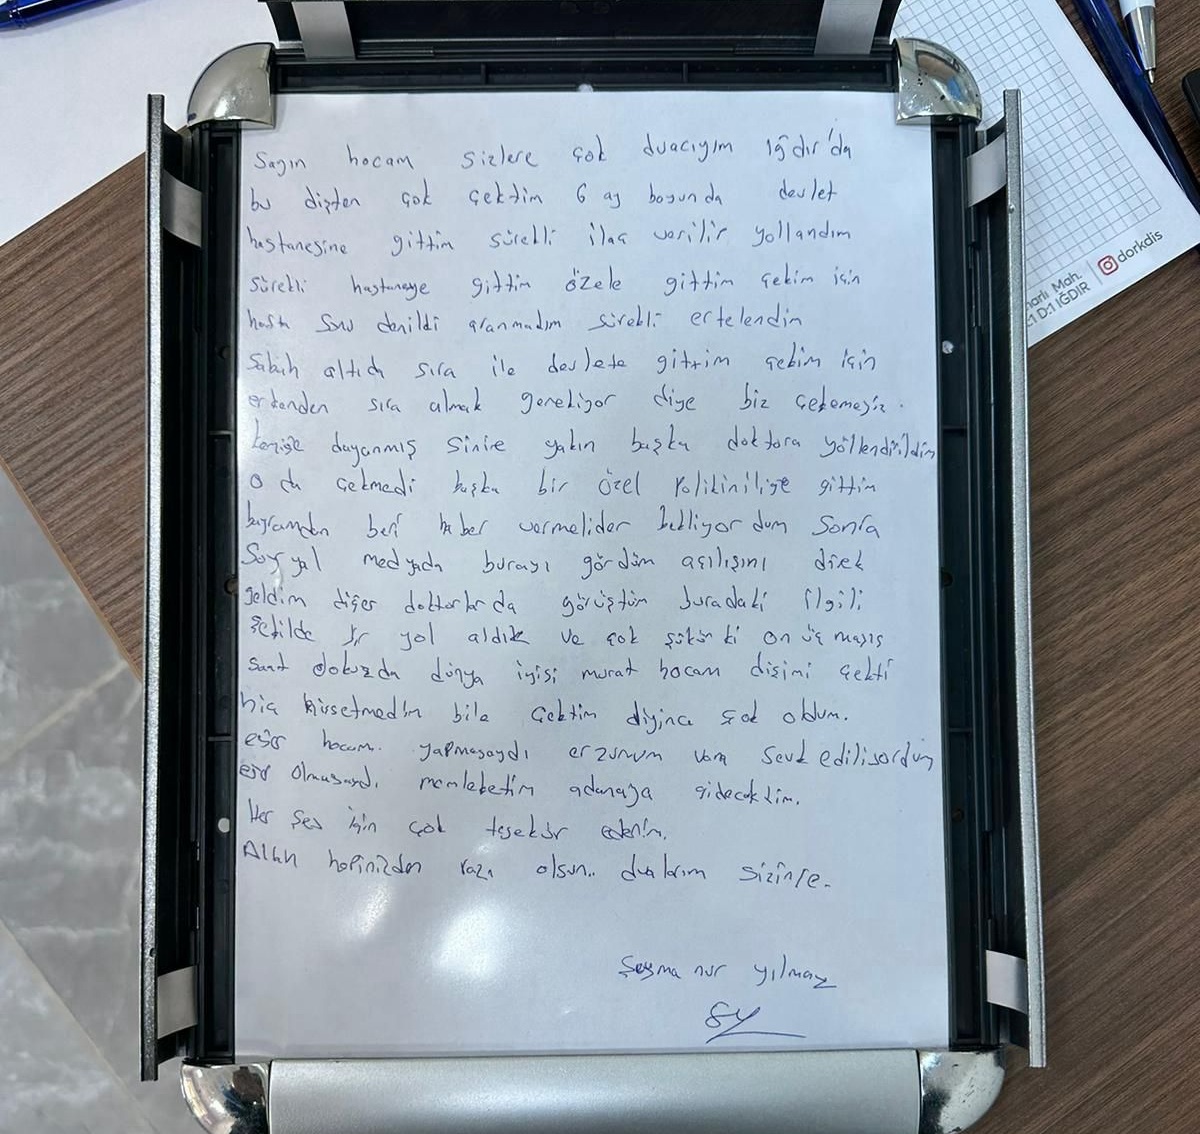 Sayın hocam sizlere çok duacıyım Iğdır'da
bu dişten çok çektim 6 ay boyunda devlet
hastanesine gittim sürekli ilaç verilir yollandım
sürekli hastaneye gittim özele gittim çekim için
hasta sonu denildi aranmadım sürekli ertelendim
sabah altıda sıra ile devlete gittim çekim için
erkenden sıra almak gerekiyor diye biz çekemeyiz.
dayanmış sinire yakın başka doktora yöllendirildim
o da çekmedi başka bir özel polikiniliğe gittim
bayramdan beri haber vermeliler bekliyordum sonra
Sosyal medyada burayı gördüm açılışını direk
geldim diğer doktorlarda görüştüm buradaki ilgili
şekilde bir yol aldık ve çok şükür ki on üç mayıs
saat dokuzda dünya iyisi murat hocam dişimi çekti
hiç hissetmedim bile çektim diyince şok oldum.
eğer hocam yapmasaydı erzurum van sevk ediliyordum
eğer olmasaydı memleketim adanaya gidecektim.
Her şey için çok teşekür ederim.
Allah hepinizden razı olsun.. dualarım sizinle.
Şeyma nur yılmaz
ŞY
harlı Mah.
:1 D:1 IĞDIR
dorkdis